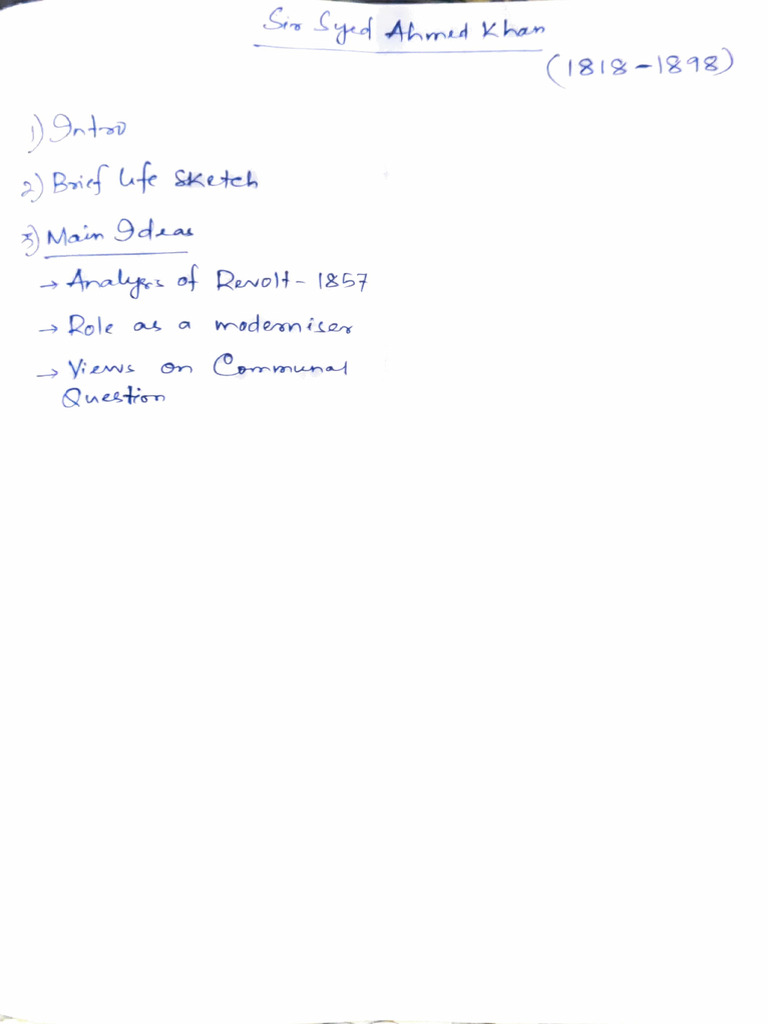 Sir Syed Ahmed Khan
(1818-1898)
1) Intro
2) Brief life sketch
3) Main Ideas
→ Analysis of Revolt - 1857
→ Role as a moderniser
→ Views on Communal
Question